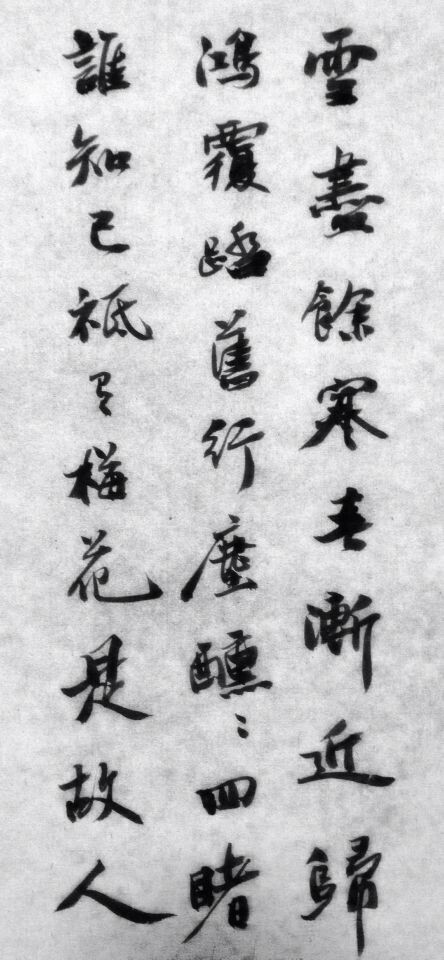 雪盡餘寒春漸近歸
鴻覆踏舊行塵醺〻四睹
誰知己祗有梅花是故人